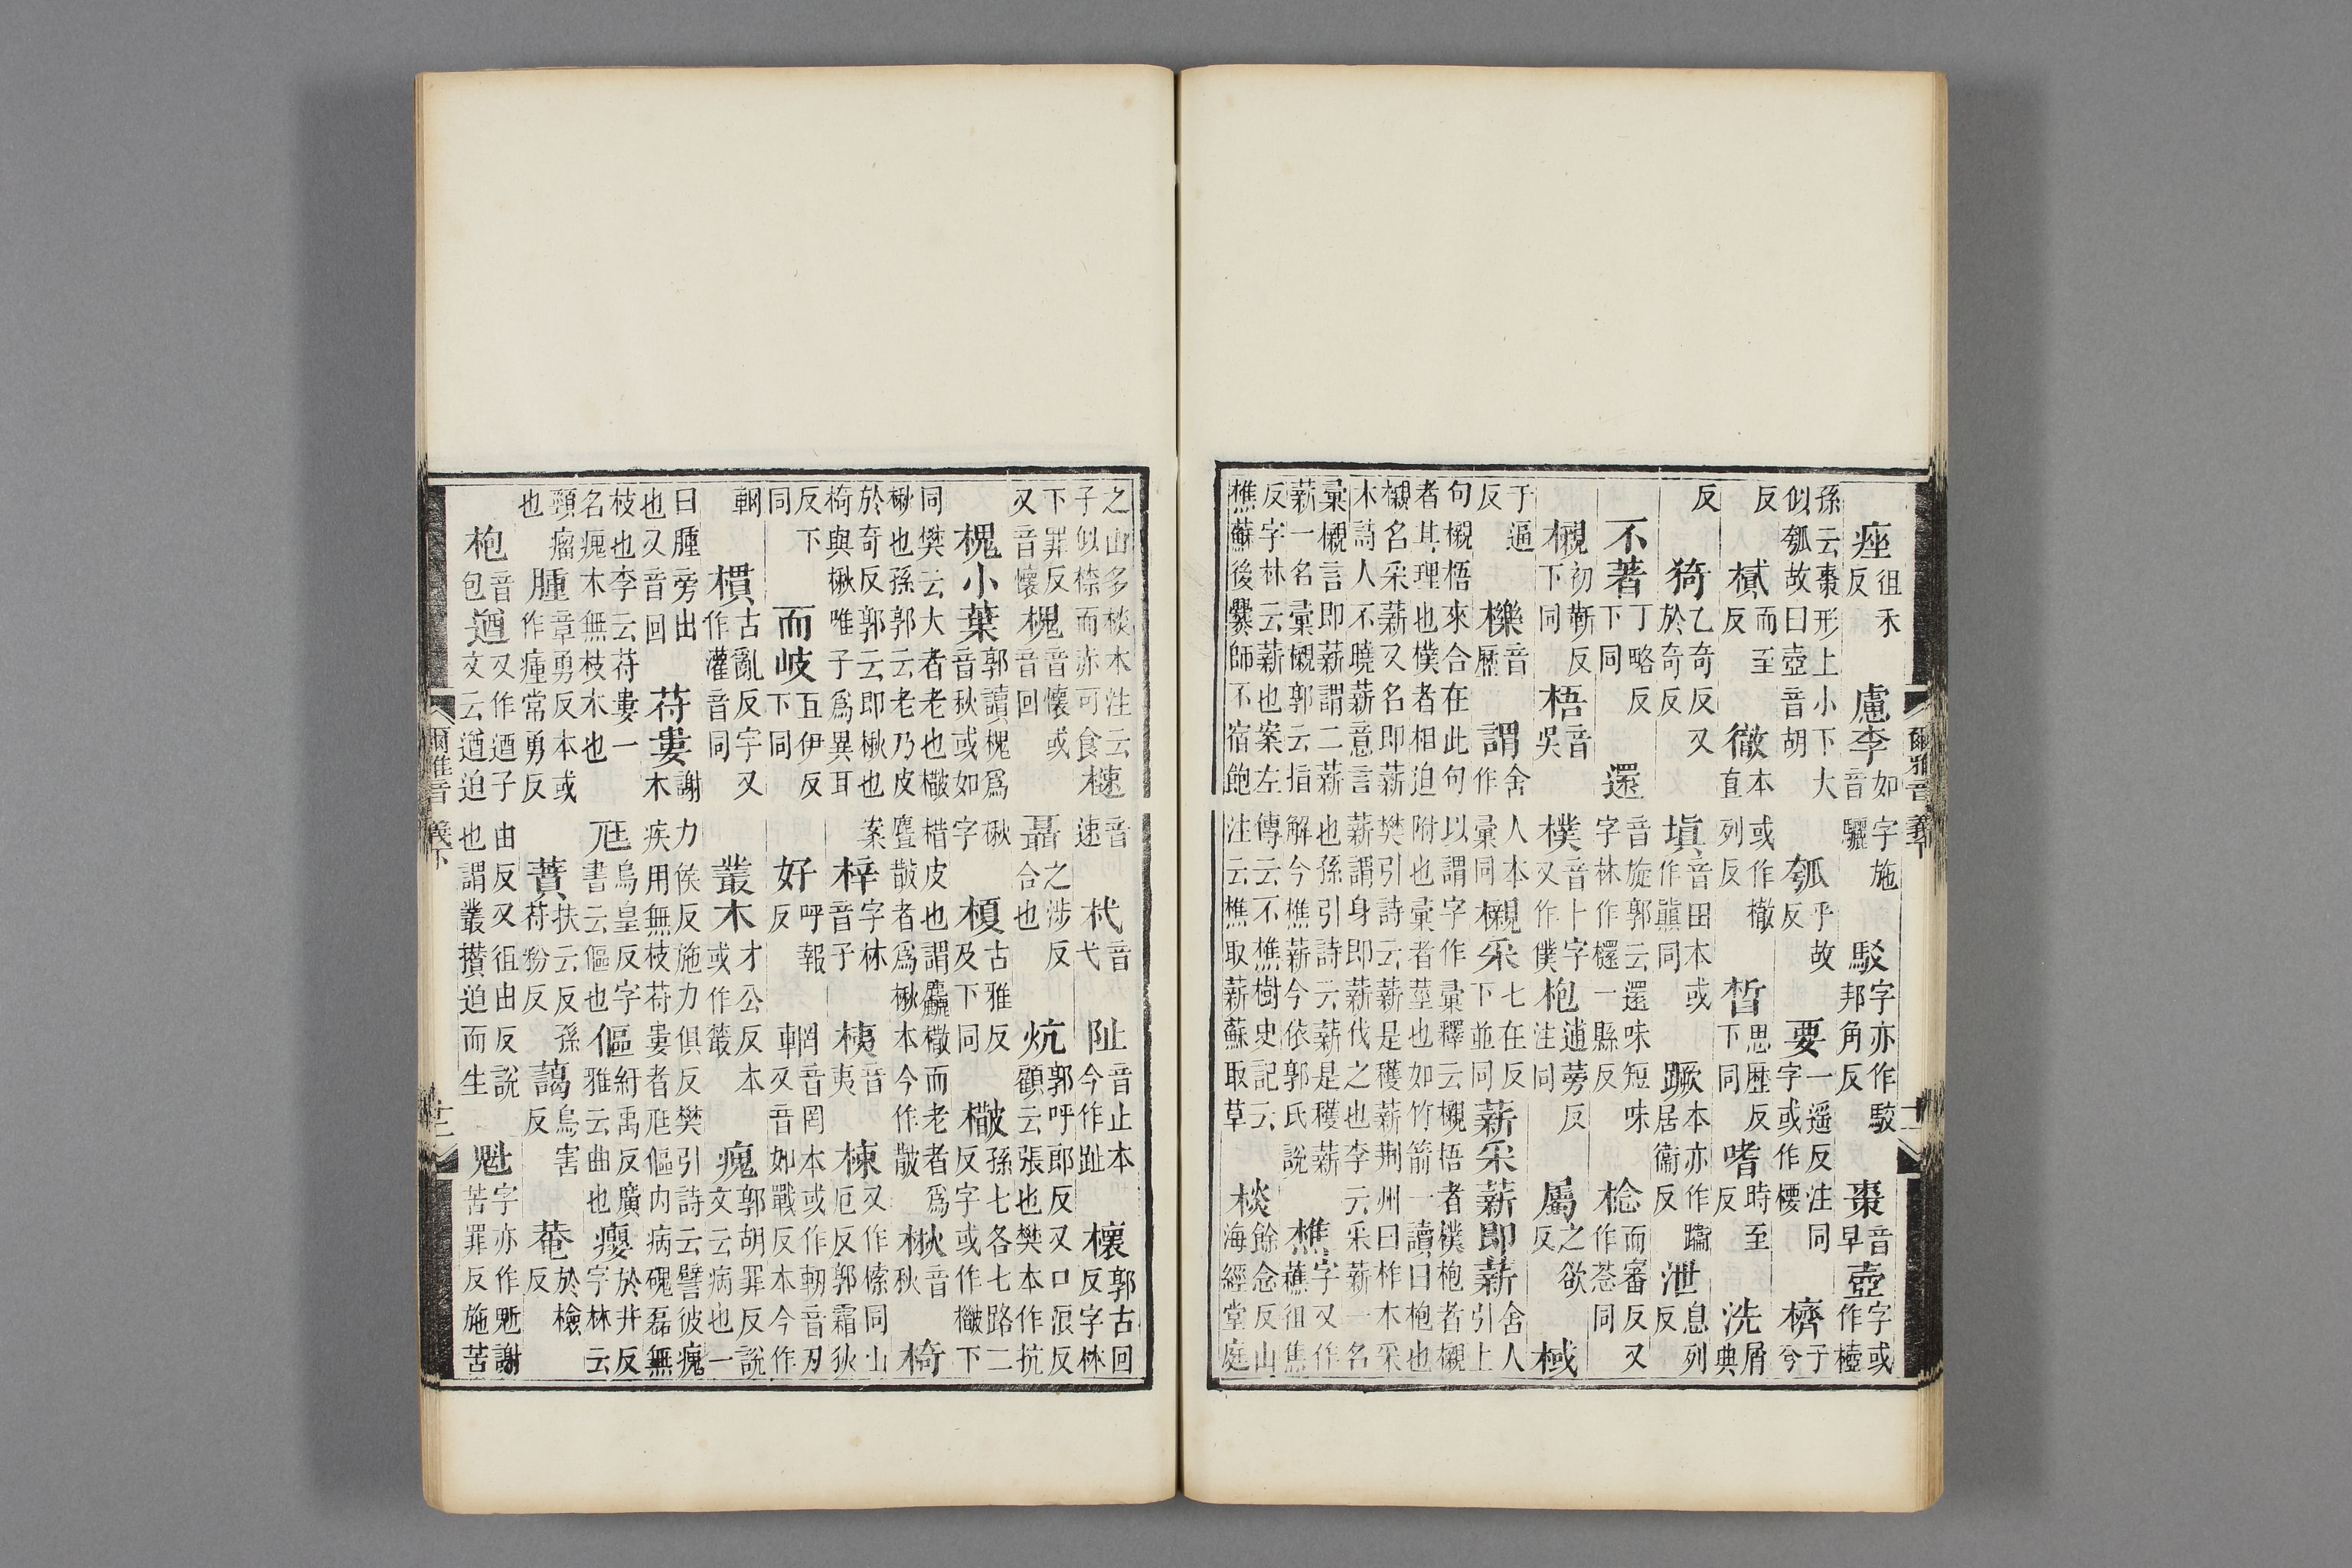 爾雅音義下
痤徂禾反 慮李如字施音驪 駁字亦作駮邦角反 棗音早 壺字或作樝
孫云棗形上小下大似瓠故曰壺音胡 瓠乎故反 要一遥反注同字或作㮁 櫅子兮
反 樲而至反 徹本或作㯙直列反 晳思歷反下同 嗜時至反 洗屑典
反 猗乙奇反又於奇反 塡音田本或作䗯同 蹶本亦作蹻居衞反 泄息列反
不著丁略反下同 還音旋郭云還味短味字林作檈一縣反 棯而審反又作荵同
櫬初靳反下同 梧音吳 樸音卜字又作僕 枹逋莠反注同 屬之欲反 棫
于逼反 櫟音歷 謂舍人本作彙同 櫬采七在反下並同 薪采薪即薪舍人引上
句櫬梧來合在此句以謂字作彙釋云櫬梧者樸枹者櫬者其理也樸者相迫附也彙者莖也如竹箭一讀曰枹也
櫬名采薪又名即薪樊引詩云薪是穫薪荆州曰柞木采木詩人不曉薪意言薪謂身即薪伐之也李云采薪一名
彙櫬言即薪謂二薪也孫引詩云薪是穫薪薪一名彙櫬郭云指解今樵薪今依郭氏說 樵字又作蕉徂焦
反字林云薪也案左傳云不樵樹史記云樵蘇後爨師不宿飽注云樵取薪蘇取草 棪餘念反山海經堂庭
之山多棪木注云子似㮈而赤可食 樕音速 杙音弋 阯音止本今作趾 櫰郭古回反字林
下罪反又音懷 槐音懷或音回 聶之涉反合也 炕郭呼郎反又口浪反顧云張也樊本作抗
槐小葉郭讀槐爲楸音秋或如字 榎古雅反及下同 㪚孫七各七路二反字或作㯙下
同樊云大者老也㯙楷皮也謂麤㯙而老者爲楸也孫郭云老乃皮麤㪚者爲楸本今作㪚 楸音秋 椅
於奇反郭云即楸也案椅與楸唯子爲異耳 梓字林音子 桋音夷 棟又作㮦同山厄反郭霜狄
反下同 而岐互伊反下同 好呼報反 輞音罔本或作軔音刃又音如戰反本今作
輞 樌古亂反字又作灌音同 叢木才公反本或作藂 瘣郭胡罪反說文云病也一
曰腫旁出也又音回 苻婁謝力侯反施力俱反樊引詩云譬彼瘣木疾用無枝苻婁者尫傴内病磈磊無
枝也李云苻婁一名瘣木無枝木也 尫烏皇反字書云傴也 傴紆禹反廣雅云曲也 癭於井反字林云
頸瘤也 腫章勇反本或作瘇常勇反 蕡扶云反孫苻粉反 藹烏害反 菴於檢反
枹音包 遒又作逎子由反又徂由反說文云遒迫也謂叢攢迫而生 魁字亦作魋謝苦罪反施苦
爾雅音義下